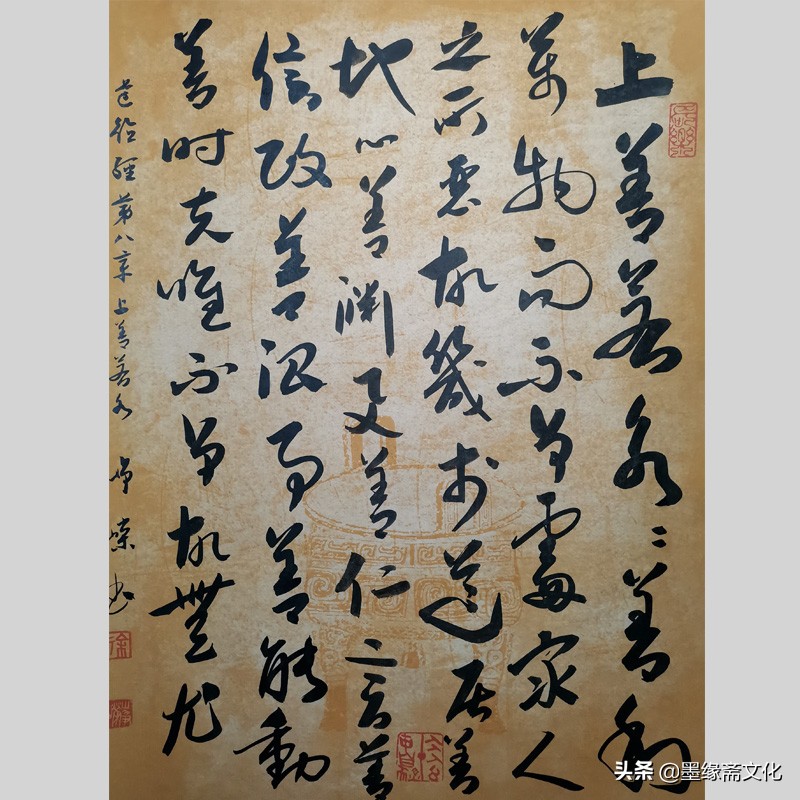 上善若水〻善利
萬物而不爭處衆人
之所惡故幾於道居善
地心善渊與善仁言善
信政善治事善能動
善时夫唯不争故無尤
道德經第八章上善若水 书
头条 @墨缘斋文化